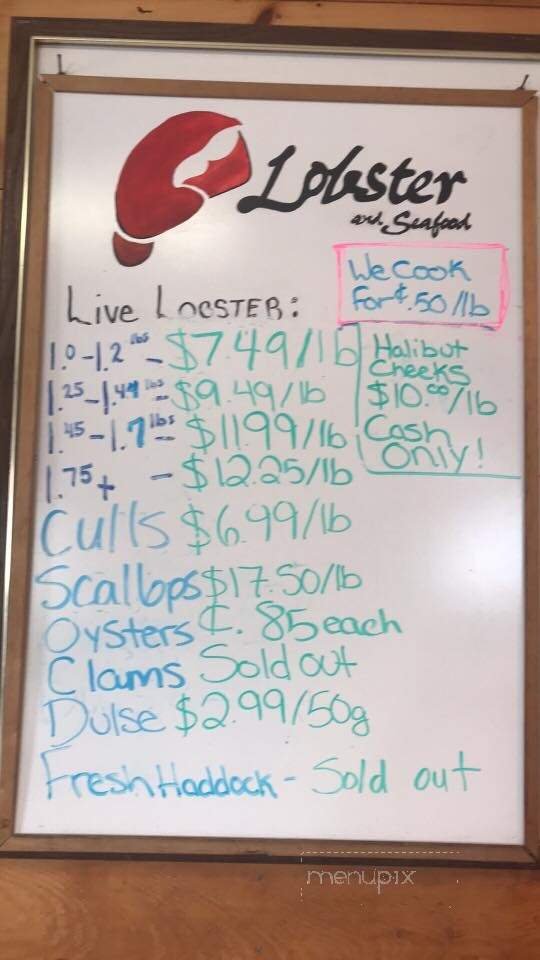 Lobster
and Seafood
We Cook
For ¢.50/lb
Live Lobster:
1.0-1.2 lbs - $7.49/lb
1.25-1.44 lbs - $9.49/lb
1.45-1.7 lbs - $11.99/lb
1.75+ - $12.25/lb
Halibut
Cheeks
$10.00/lb
Cash
Only!
Culls $6.99/lb
Scallops $17.50/lb
Oysters ¢.85 each
Clams Sold out
Dulse $2.99/50g
Fresh Haddock - Sold out
menupix